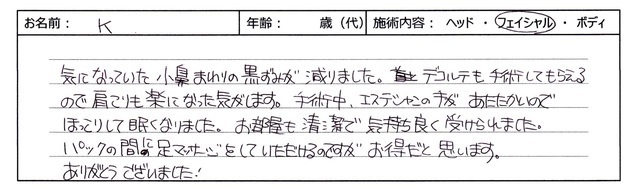 お名前： K 年齢： 歳（代） 施術内容： ヘッド ・ フェイシャル ・ ボディ
気になっていた 小鼻まわりの黒ずみが 減りました。 デコルテも手術してもらえる
ので肩こりも楽になった気がします。 手術中、エステシャンの手が あたたかいので
ほっこりして眠くなりました。 お部屋も清潔で 気持ち良く 受けられました。
パックの間に足マッサージをしていただけるのですが お得だと 思います。
ありがとうございました！